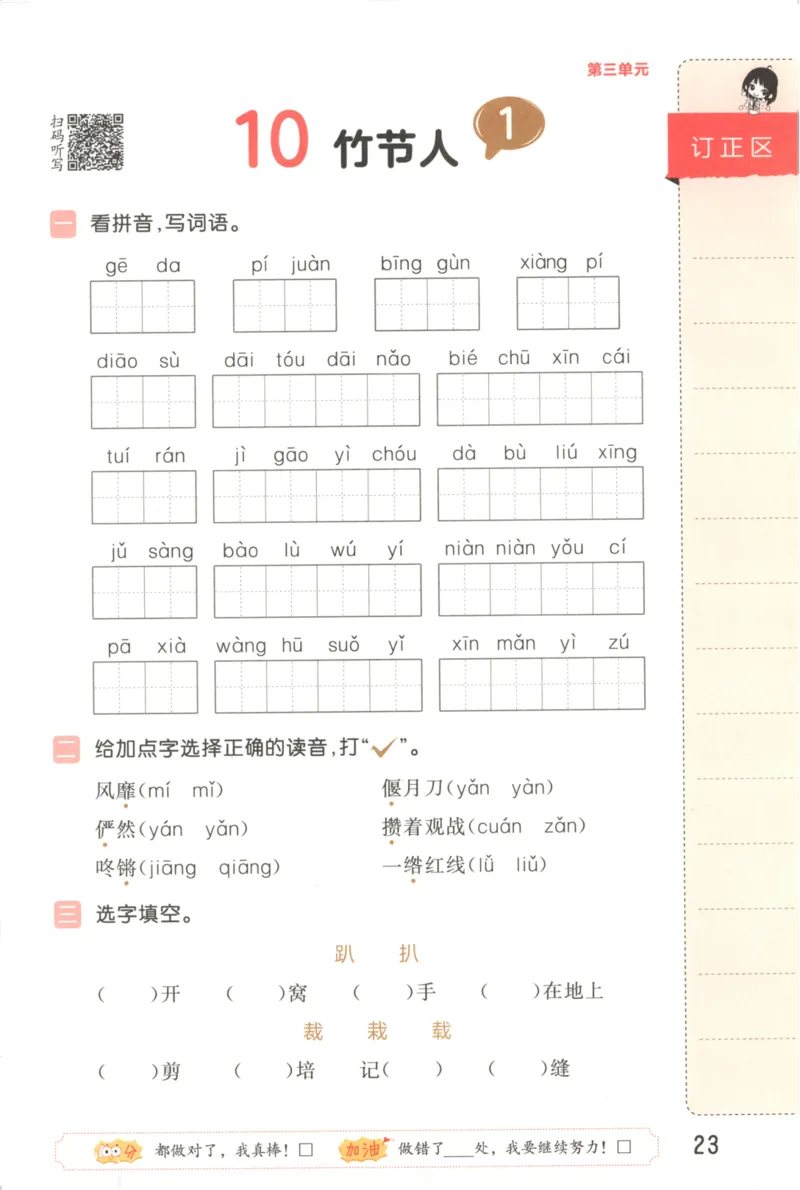 第三单元
扫码听写
10 竹节人 1
订正区
一 看拼音,写词语。
gē da pí juàn bīng gùn xiàng pí
diāo sù dāi tóu dāi nǎo bié chū xīn cái
tuí rán jì gāo yì chóu dà bù liú xīng
jǔ sàng bào lù wú yí niàn niàn yǒu cí
pā xià wàng hū suǒ yǐ xīn mǎn yì zú
二 给加点字选择正确的读音,打“✓”。
风靡(mí mǐ) 偃月刀(yǎn yàn)
俨然(yán yǎn) 攒着观战(cuán zǎn)
咚锵(jiāng qiāng) 一绺红线(lǚ liǔ)
三 选字填空。
趴 扒
( )开 ( )窝 ( )手 ( )在地上
裁 栽 载
( )剪 ( )培 记( ) ( )缝
100分 都做对了，我真棒！□ 加油 做错了___处，我要继续努力！□
23